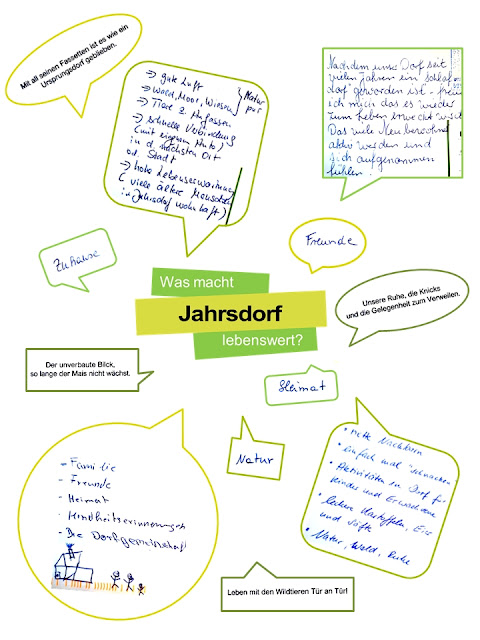 Mit all seinen Fassetten ist es wie ein
Ursprungsdorf geblieben.
-> gute Luft
-> Wald, Moor, Wiesen
Natur pur
-> Tiere z. Anfassen
-> schnelle Verbindung
(mit eigenem Auto)
in d. nächsten Ort
od. Stadt
-> hohe Lebenserwartung
(viele ältere Menschen
in Jahrsdorf wohnhaft)
Nachdem unser Dorf seit
vielen Jahren ein Schlaf-
dorf geworden ist - freue
ich mich das es wieder
zum Leben erweckt wird
Das viele Neubewohner
aktiv werden und
sich aufgenommen
fühlen.
Zuhause
Freunde
Was macht
Jahrsdorf
lebenswert?
Unsere Ruhe, die Knicks
und die Gelegenheit zum Verweilen.
Der unverbaute Blick,
so lange der Mais nicht wächst.
Heimat
Natur
- Familie
- Freunde
- Heimat
- Kindheitserinnerungen
- Die Dorfgemeinschaft
• nette Nachbarn
• einfach mal "schnacken"
• Aktivitäten im Dorf für
Kinder und Erwachsene
• leckere Kartoffeln, Eier
und Säfte
• Natur, Wald, Ruhe
Leben mit den Wildtieren Tür an Tür!